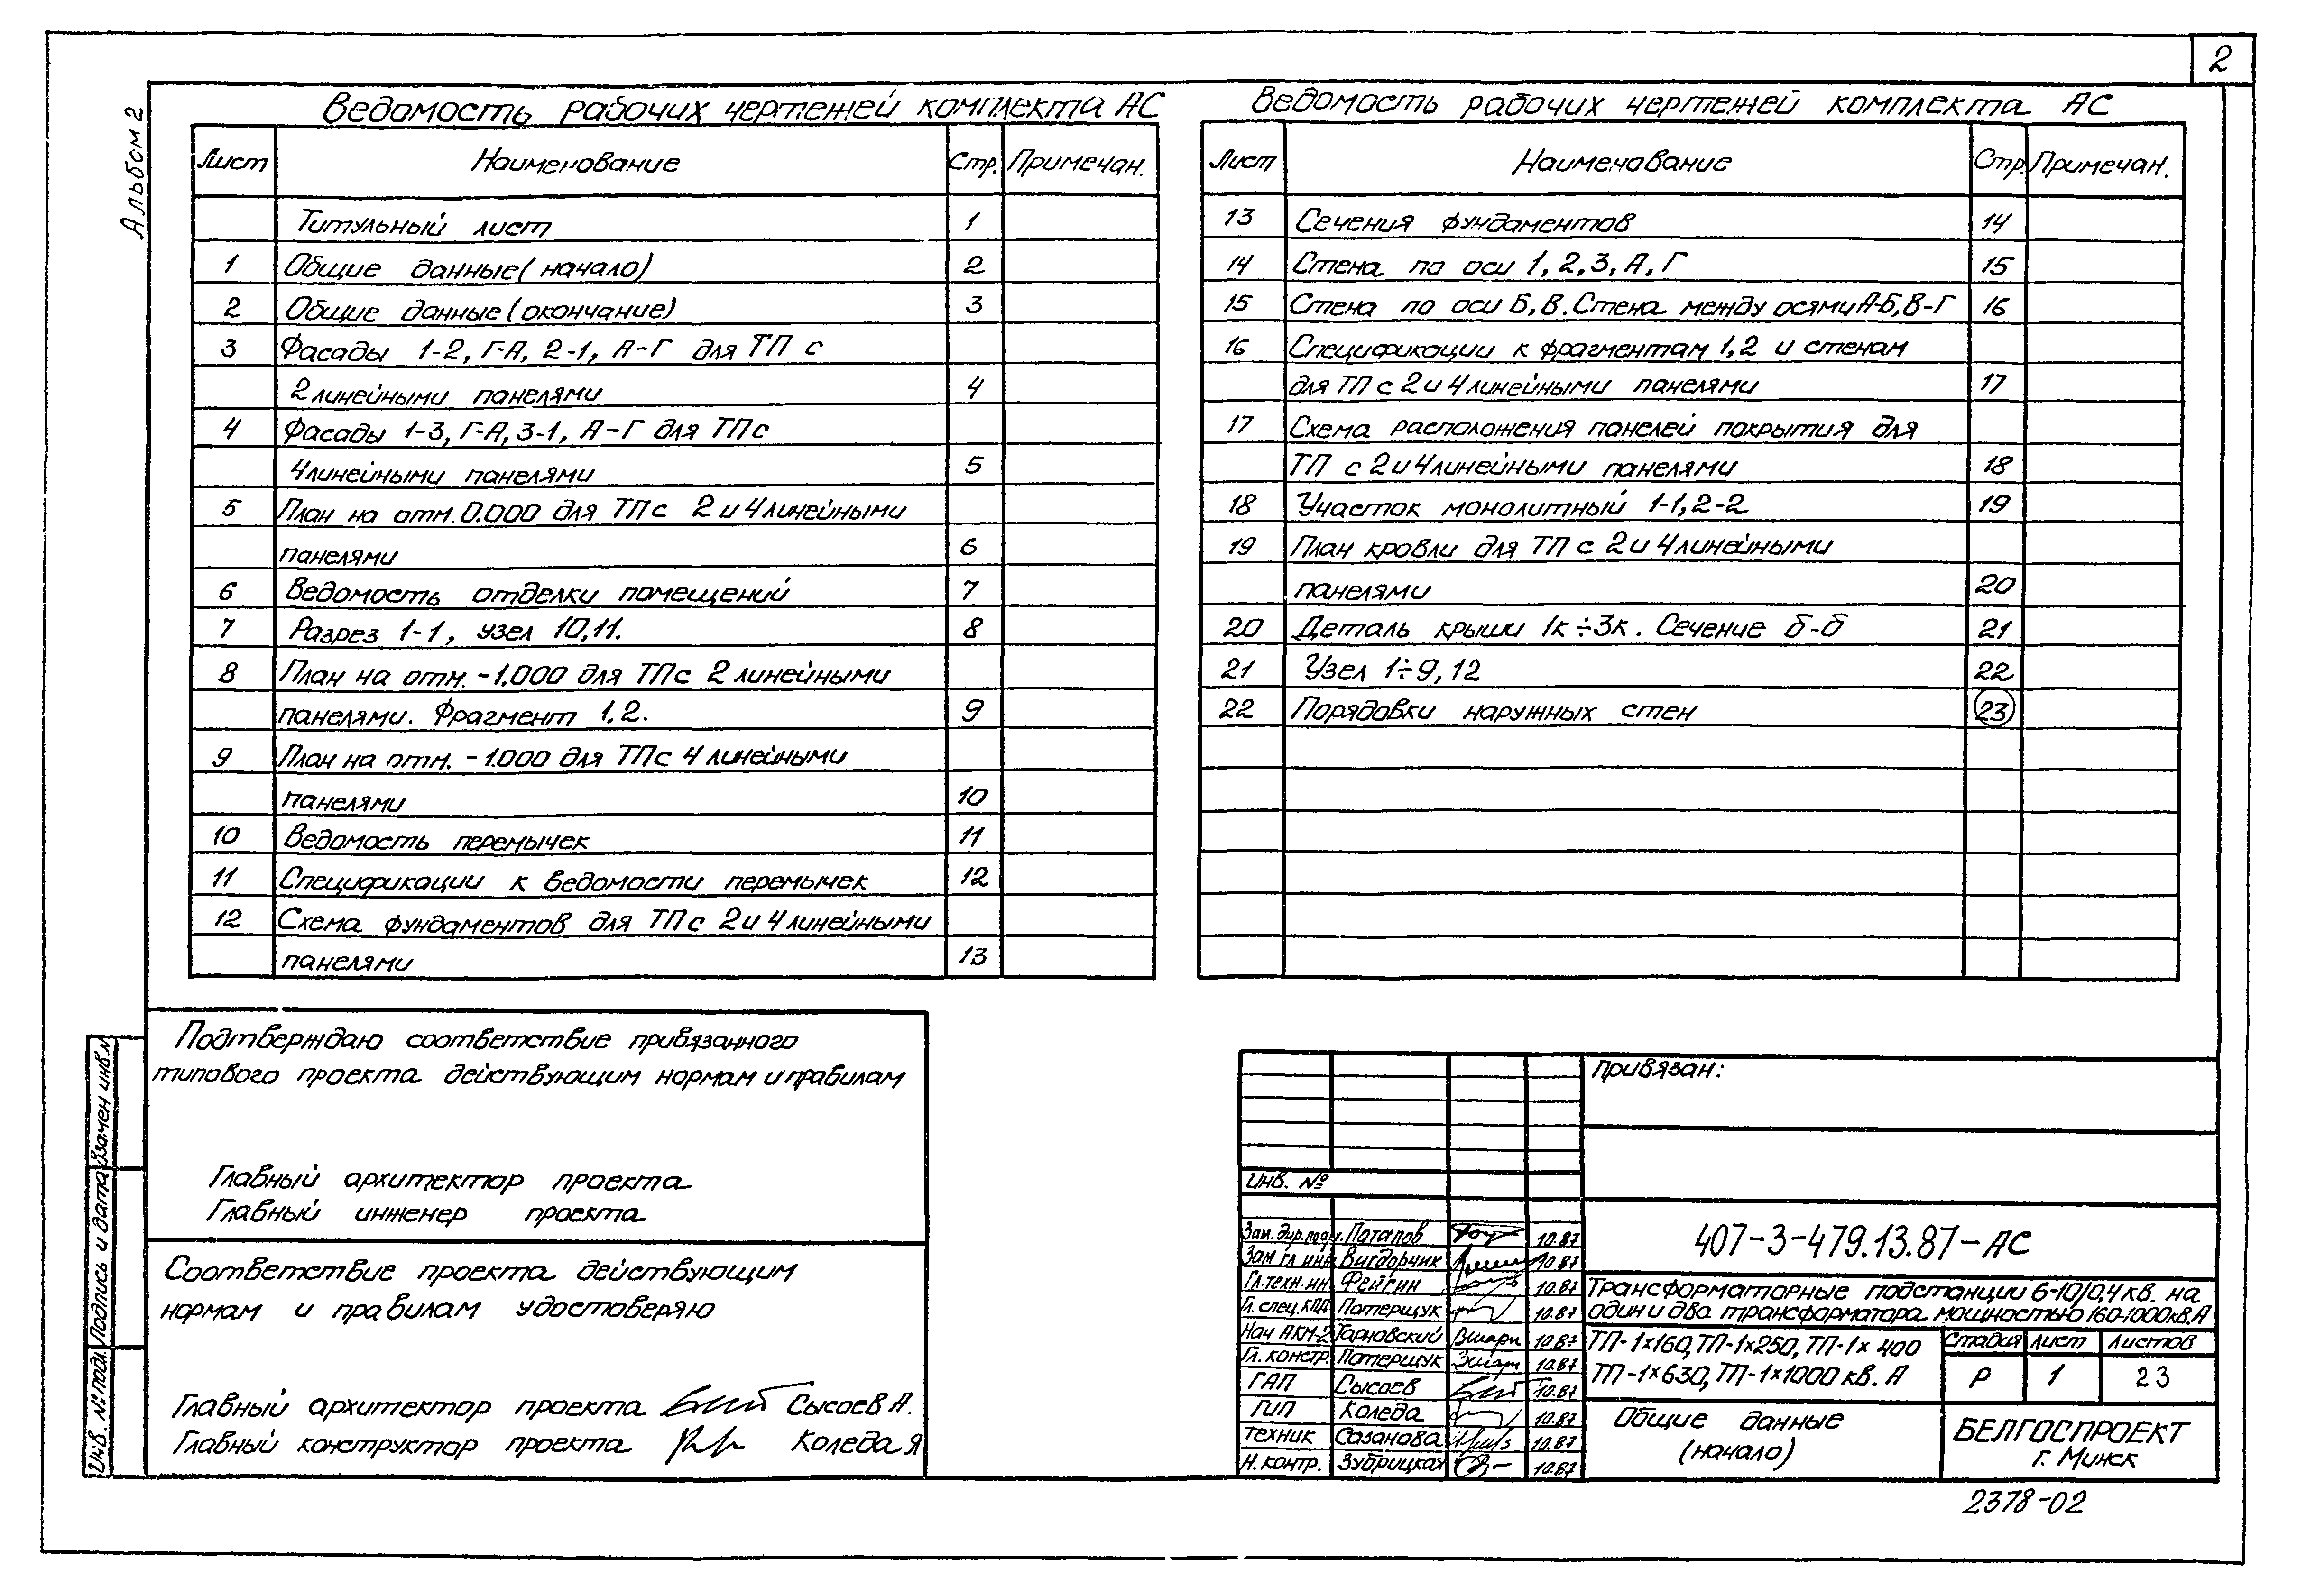 2
Альбом 2
Ведомость рабочих чертежей комплекта АС
Лист Наименование Стр. Примечан.
Титульный лист 1
1 Общие данные (начало) 2
2 Общие данные (окончание) 3
3 Фасады 1-2, Г-А, 2-1, А-Г для ТП с
2 линейными панелями 4
4 Фасады 1-3, Г-А, 3-1, А-Г для ТП с
4 линейными панелями 5
5 План на отм. 0.000 для ТП с 2 и 4 линейными
панелями 6
6 Ведомость отделки помещений 7
7 Разрез 1-1, узел 10,11. 8
8 План на отм. -1.000 для ТП с 2 линейными
панелями. Фрагмент 1.2. 9
9 План на отм. -1.000 для ТП с 4 линейными
панелями 10
10 Ведомость перемычек 11
11 Спецификации к ведомости перемычек 12
12 Схема фундаментов для ТП с 2 и 4 линейными
панелями 13
Ведомость рабочих чертежей комплекта АС
Лист Наименавание Стр. Примечан.
13 Сечения фундаментов 14
14 Стена по оси 1, 2, 3, А, Г 15
15 Стена по оси Б, В. Стена между осями А-Б, В-Г 16
16 Спецификации к фрагментам 1,2 и стенам
для ТП с 2 и 4 линейными панелями 17
17 Схема расположения панелей покрытия для
ТП с 2 и 4 линейными панелями 18
18 Участок монолитный 1-1, 2-2 19
19 План кровли для ТП с 2 и 4 линейными
панелями 20
20 Деталь крыши 1к÷3к. Сечение б-б 21
21 Узел 1÷9, 12 22
22 Порядовки наружных стен 23
Подтверждаю соответствие привязанного
типового проекта действующим нормам и правилам
Главный архитектор проекта
Главный инженер проекта
Соответствие проекта действующим
нормам и правилам удостоверяю
Главный архитектор проекта Сысоев А.
Главный конструктор проекта Коледа Я
Взамен инв.№
Подпись и дата
Инв. № подл.
Привязан:
Инв. №
Зам. дир. Потапов 10.87
Зам гл инж Вигдорчик 10.87
Гл. техн. ин Фейгин 10.87
Гл. спец. КПД Потерщук 10.87
Нач АКМ-2 Тарновский 10.87
Гл. констр. Потерщук 10.87
ГАП Сысоев 10.87
ГИП Коледа 10.87
Техник Сазанова 10.87
Н. контр. Зубрицкая 10.87
407-3-479.13.87-АС
Трансформаторные подстанции 6-10/0,4 кв. на
один и два трансформатора мощностью 160-1000 кв.А
ТП-1×160, ТП-1×250, ТП-1×400
ТП-1×630, ТП-1×1000 кв. А
Стадия Лист Листов
Р 1 23
Общие данные
(начало)
БЕЛГОСПРОЕКТ
г. Минск
2378-02